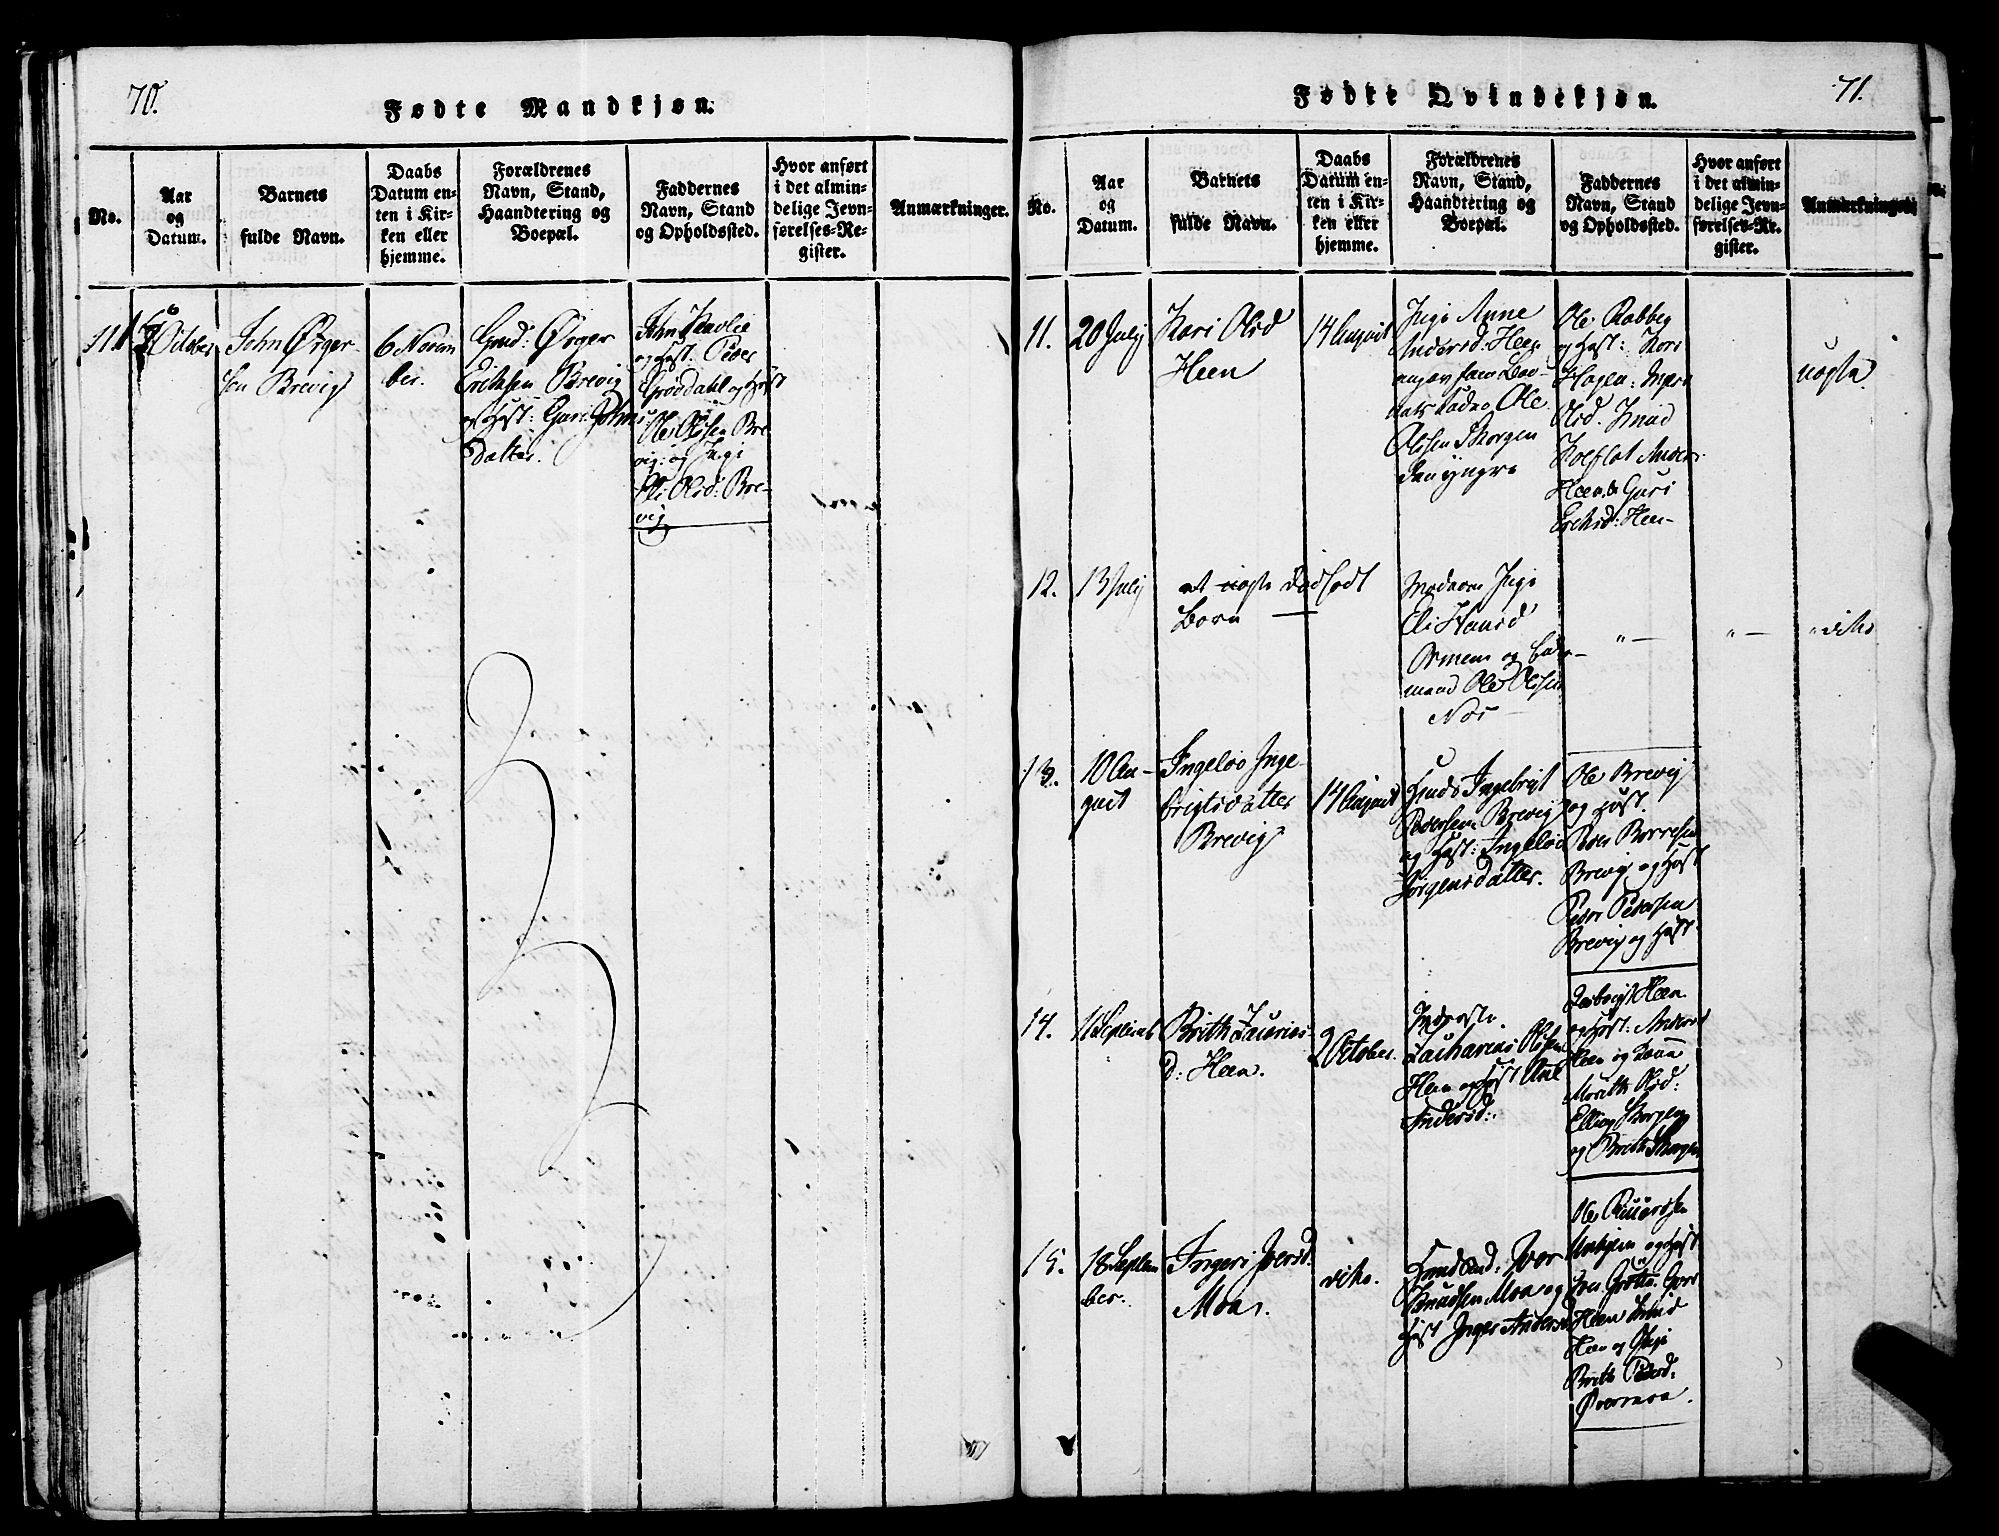 70.
Fødte Mandkjøn.
No.
Aar
og
Datum.
Barnets
fulde Navn.
Daabs
Datum en-
ten i Kir-
ken eller
hjemme.
Forældrenes
Navn, Stand,
Haandtering og
Boepæl.
Faddernes
Navn, Stand
og Opholdssted.
Hvor anført
i det almin-
delige Jevn-
førelses-Re-
gister.
Anmærkninger.
October
John Ørger-
sen Brevig
6 Novem
ber.
Gmd: Ørger
Eriksen Brevig
og Hust: Guri Johns
Datter.
John
og Hust: Peder
Grøvdahl og Hust
Ole Olsen Bre
vig og Pige
Olsd: Bre-
vig
71.
Fødte Qvindekjøn.
No.
Aar
og
Datum.
Barnets
fulde Navn.
Daabs
Datum en-
ten i Kir-
ken eller
hjemme.
Forældrenes
Navn, Stand,
Haandtering og
Boepæl.
Faddernes
Navn, Stand
og Opholdssted.
Hvor anført
i det almin-
delige Jevn-
førelses-Re-
gister.
Anmærkninger
11.
20 July
Kari Olsd
Heen
14 August
Pige Anne
Andersd: Heen
angav som Bar-
nets Fader Ole
Olssen Skorgen
den yngre
Ole Rabbeg
og Hust: Kari
Hagen:
Olsd. Knud
Kolflot Anders
Heen & Guri
Erichsd: Heen
uægte
12.
13 July
et uægte dødfødt
Barn —
Moderen Pige
Eli Hansd
Ormem og Barne-
mand Ole Olssen
Næs —
" —
" —
" dito
13.
10 Au-
gust
Ingeloo Inge-
brigtsdatter
Brevig
14 August
Gmd: Ingebrigt
Pedersen Brevig
og Hust: Ingeloo
Jørgensdatter.
Ole Brevig
og Hust.
Peder Børresen
Brevig og Hust
Peder Pedersen
Brevig og Hust.
14.
11 Septemb
Brith Zacrias-
d: Heen.
2 October.
Inderste
Zacharias Olsen
Heen og Hust Ane
Andersd:
Heen
og Hust: Anders
Heen og Kone
Marith Olsd:
Elling Skorgen
og Brith Skorgen
15.
18 Septem
ber.
Ingeri Iversd.
Moa.
dito.
Gmd: Iver
Knudsen Moa og
Hust Inger Andersd
Ole
og Hust
Guri
Heen Knud
Heen og Pige
Brith Pedersd:
Øvermoa.